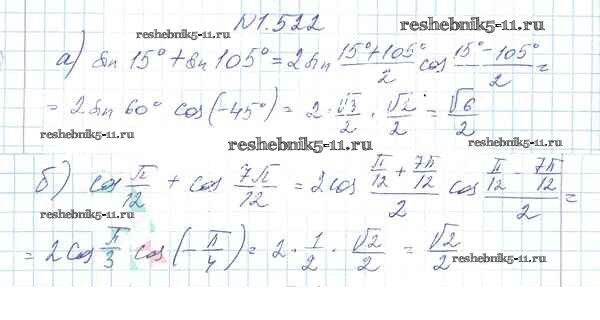 №1.522
reshebnik5-11.ru
reshebnik5-11.ru
а) sin 15° + sin 105° = 2 sin (15°+105°)/2 cos (15°-105°)/2 =
= 2 sin 60° cos(-45°) = 2 · √3/2 · √2/2 = √6/2
reshebnik5-11.ru
reshebnik5-11.ru
reshebnik5-11.ru
б) cos π/12 + cos 7π/12 = 2cos (π/12 + 7π/12)/2 cos (π/12 - 7π/12)/2 =
reshebnik5-11.ru
= 2 cos π/3 cos(-π/4) = 2 · 1/2 · √2/2 = √2/2
reshebnik5-11.ru